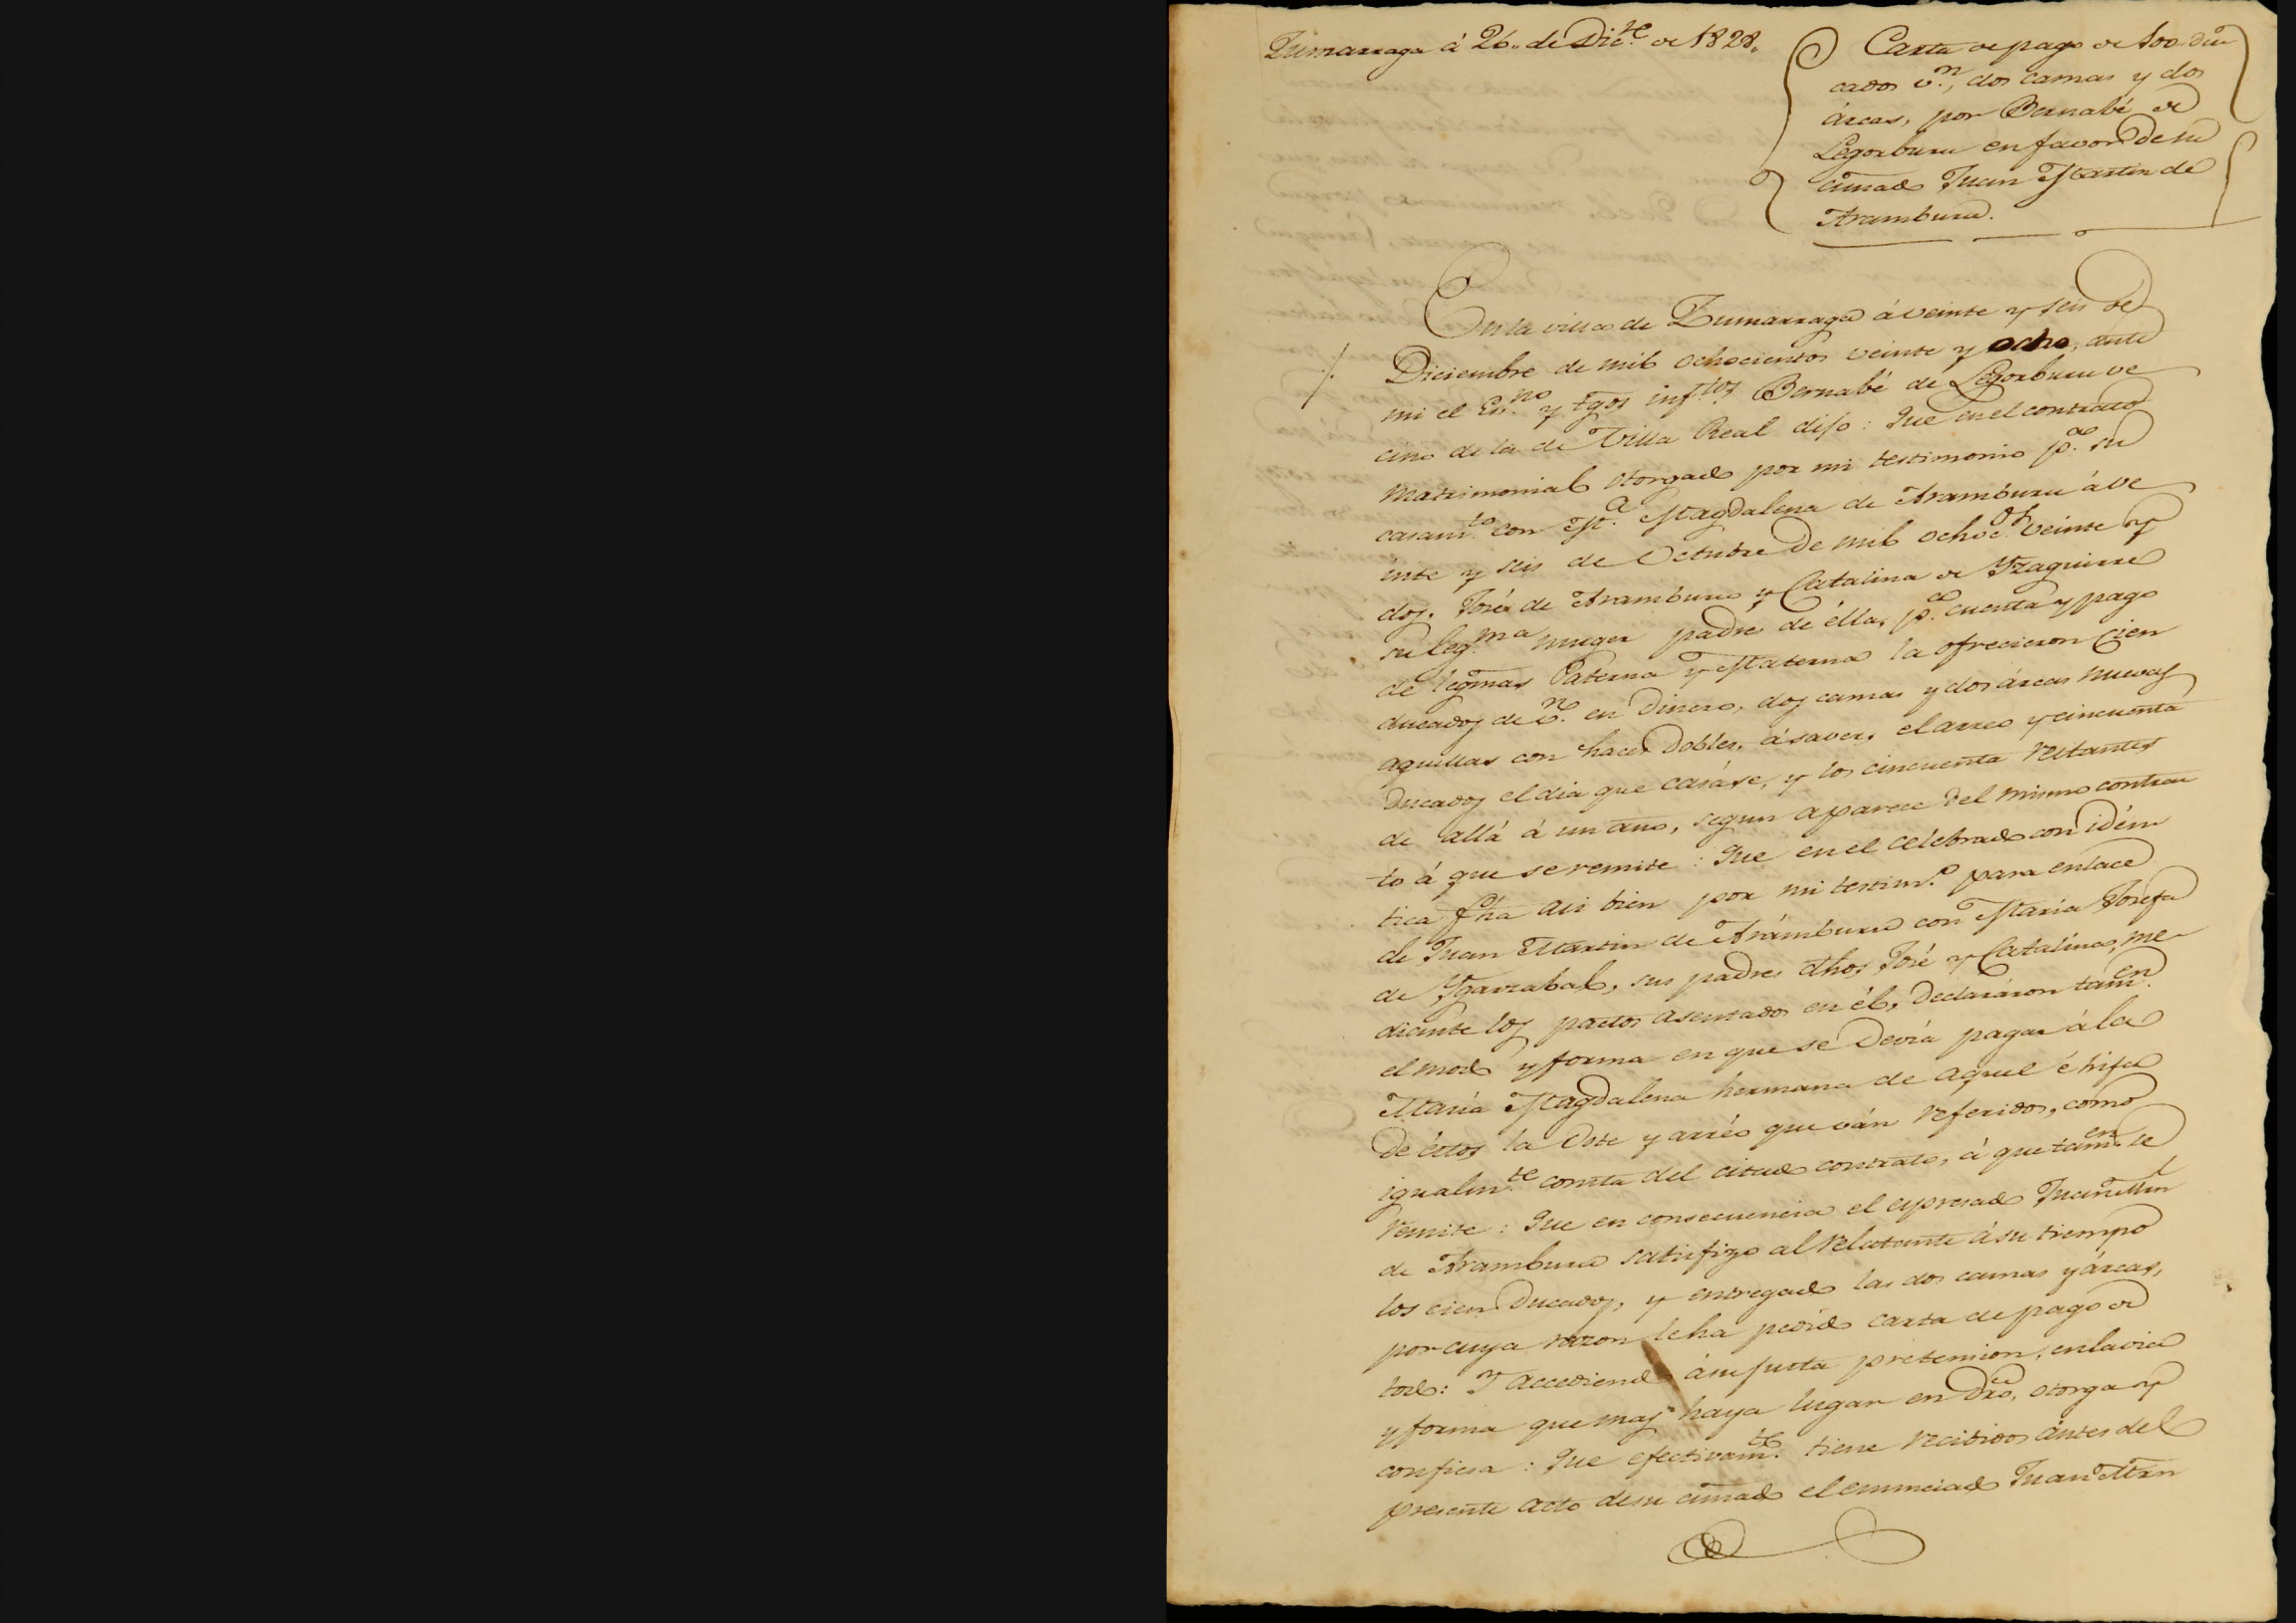 Zumarraga á 26. de Dic.te de 1828.
Carta de pago de 100. du
cados v.n, dos camas y dos
árcas, por Bernabé de
Legorburu en favor de su
cuñado Juan Martin de
Aramburu.
En la villa de Zumarraga á veinte y seis de
Diciembre de mil ochocientos veinte y ocho, ante
mi el Es.no y tgos inf.tos Bernabé de Legorburu ve
cino de la de Villa Real dijo: Que en el contrato
matrimonial otorgado por mi testimonio p.a su
casam.to con M.a Magdalena de Aramburu á ve
inte y seis de Octubre de mil ochoc.os veinte y
dos, José de Aramburu y Catalina de Yzaguirre
su leg.ma muger padres de élla, p.a cuenta y pago
de legmas Paterna y Materna la ofrecieron cien
ducados de v.n en dinero, dos camas y dos árcas nuevas
aquellas con haces dobles, á saver, el arreo y cincuenta
Ducados el dia que casáse, y los cincuenta restantes
de allá á un año, segun aparece del mismo contra
to á que se remite: Que en el celebrado con idén
tica fha asi bien por mi testim.o para enlace
de Juan Martin de Arámburu con María Josefa
de Ygarzabal, sus padres dhos José y Catalina, me
diante los pactos asentados en él, declaráron tam.en
el modo y forma en que se devía pagar á la
María Magdalena hermana de aquel é hija
de éstos la Dote y arréo que ván referidos, como
igualm.te consta del citado contrato, á que tam.en se
remite: Que en consecuencia el espresado Juan Mrn
de Aramburu satisfizo al relatante á su tiempo
los cien Ducados, y entregado las dos camas y árcas,
por cuya razon le ha pedido carta de pago de
todo: Y accediendo á su justa pretension, en la via
y forma que mas haya lugar en dro, otorga y
confiesa: Que efectivam.te tiene recividos ántes del
presente acto de su cuñado el enunciado Juan Mrn